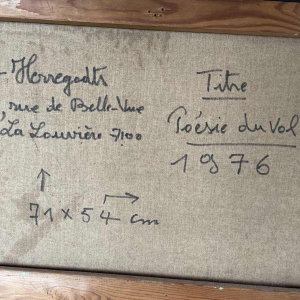 Horregodts
rue de Belle-Vue
La Louvière 7100
Titre
Poésie du Vol
1976
71 x 54 cm